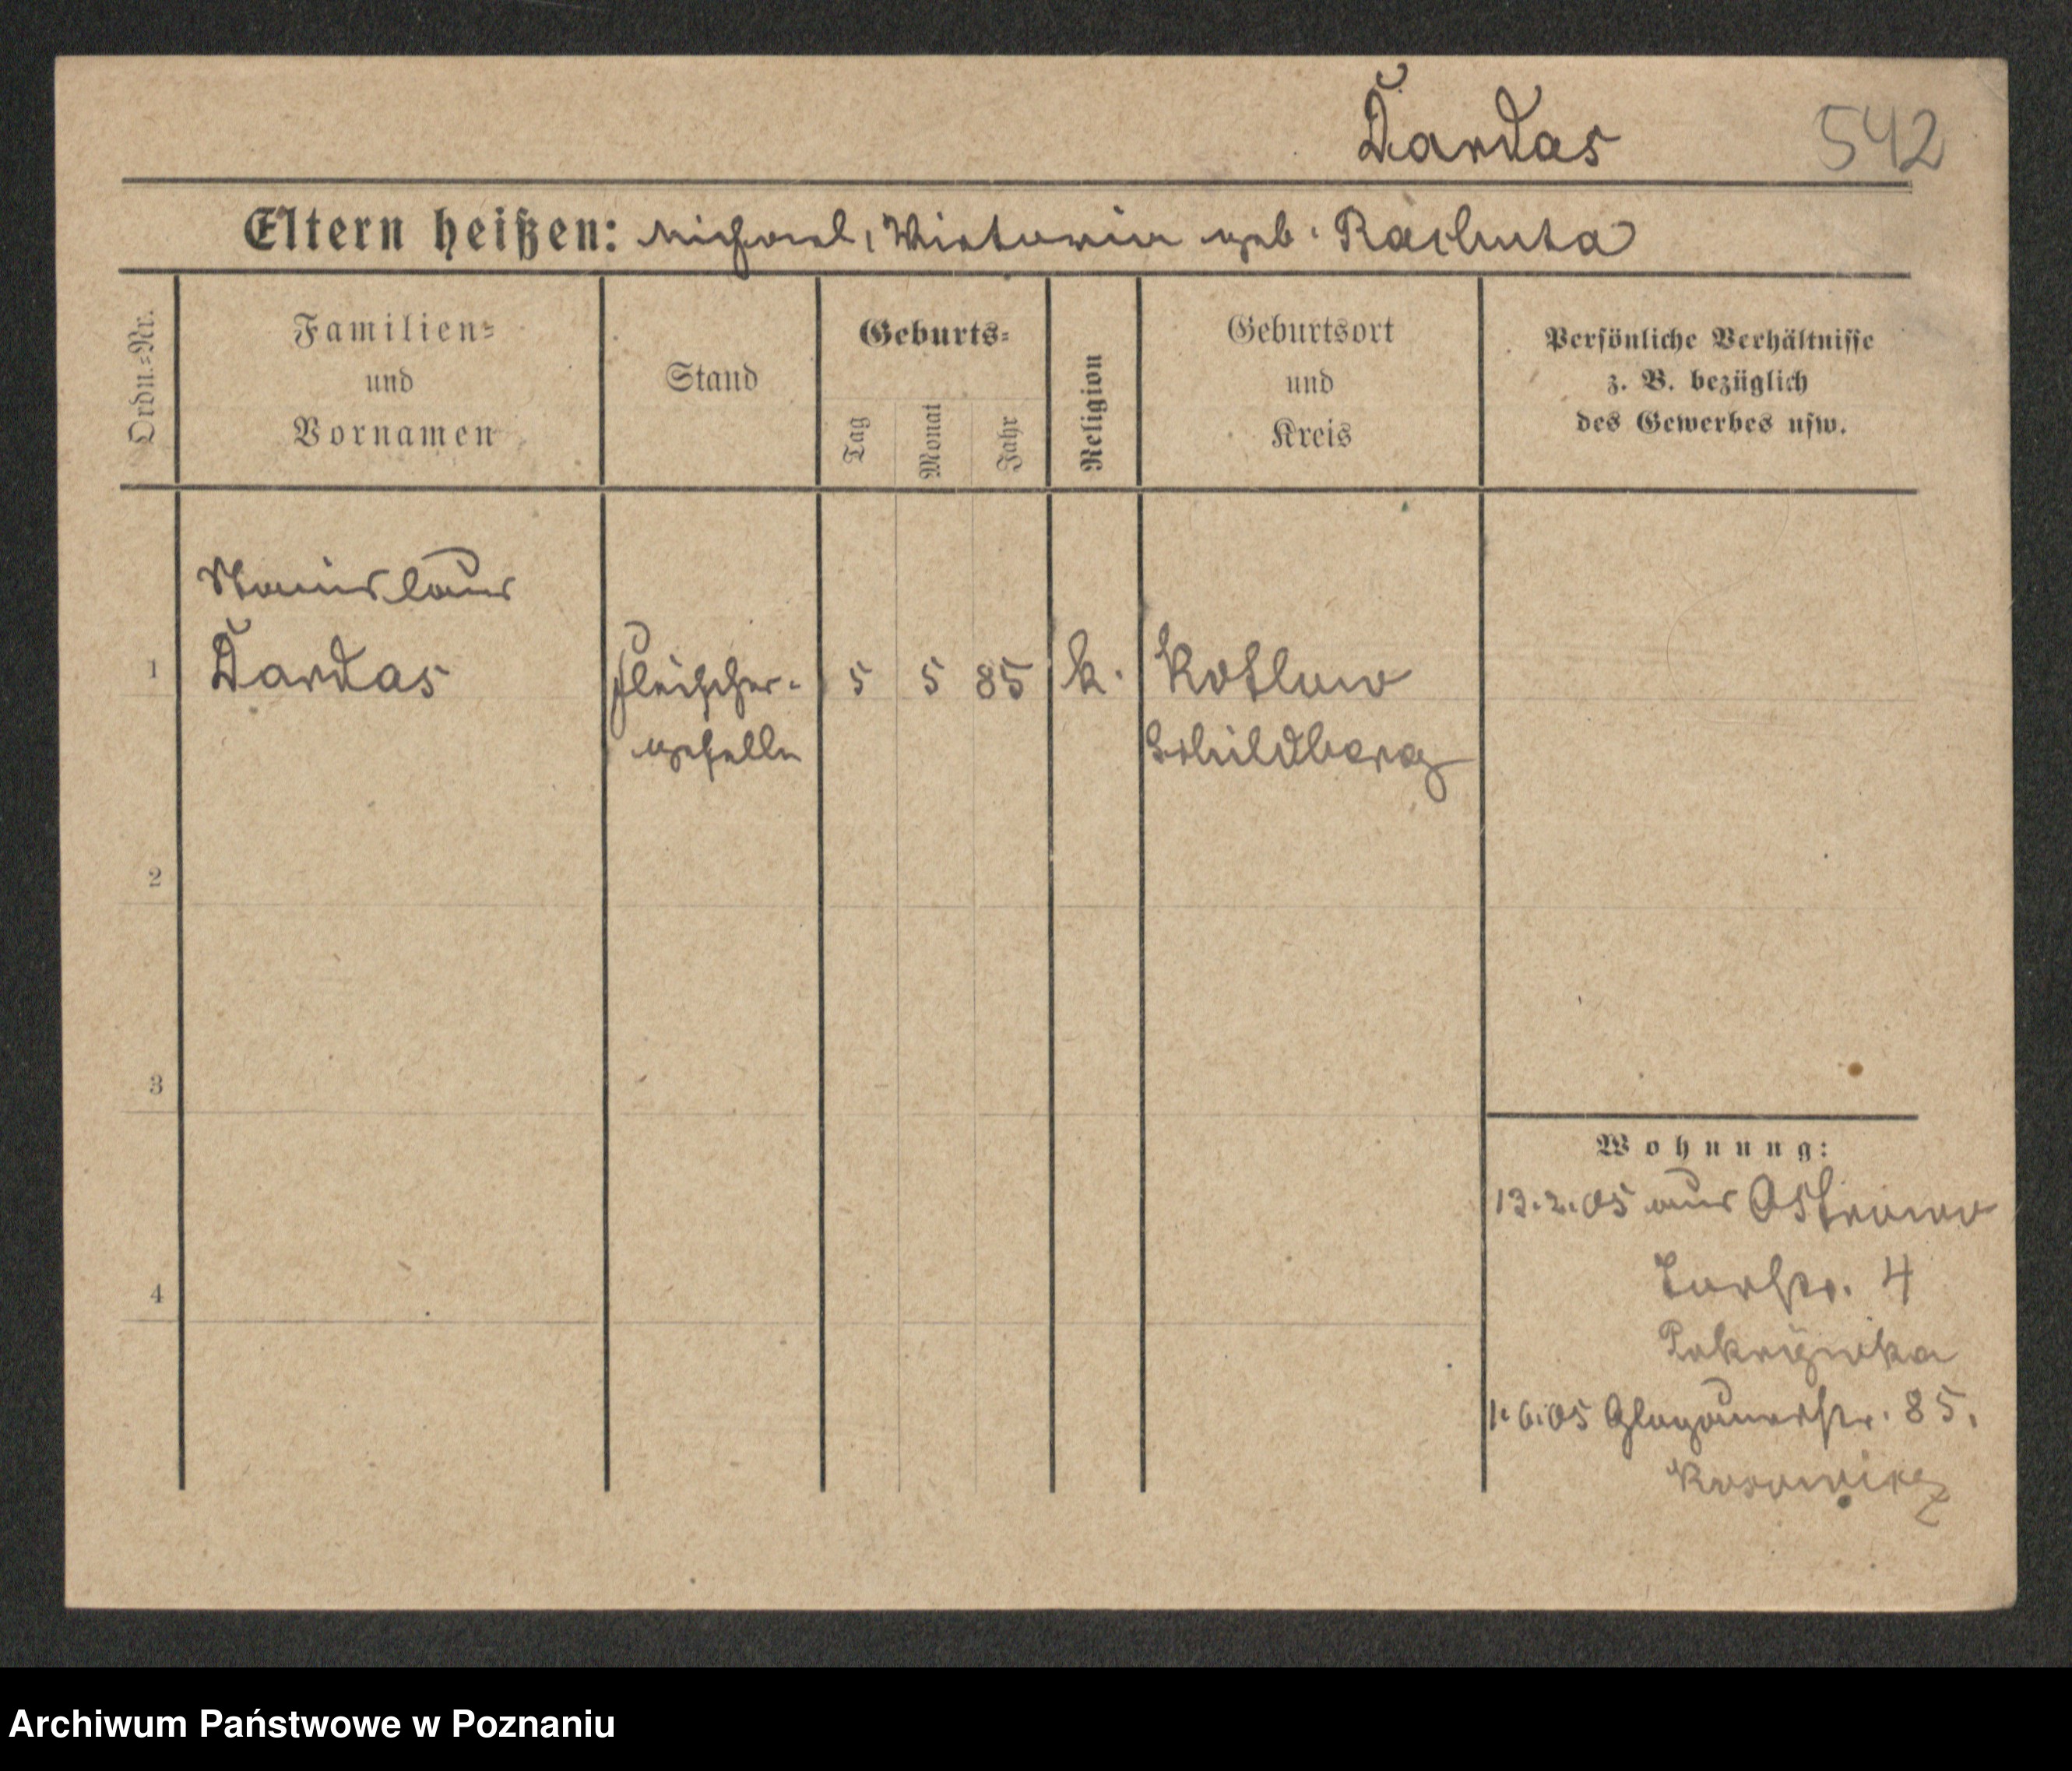 Dardas 542
Eltern heißen: Michael, Wiktoria geb. Rachuta
Ordn.=Nr.
Familien=
und
Vornamen
Stand
Geburts=
Tag
Monat
Jahr
Religion
Geburtsort
und
Kreis
Persönliche Verhältnisse
z. B. bezüglich
des Gewerbes usw.
Stanislaus
1 Dardas Fleischer- 5 5 85 k. Kotlow
geselle Schildberg
2
3
4
Wohnung:
13.2.05 aus Ostrowo
Torstr. 4
1.6.05 Glogauerstr. 85.
Archiwum Państwowe w Poznaniu